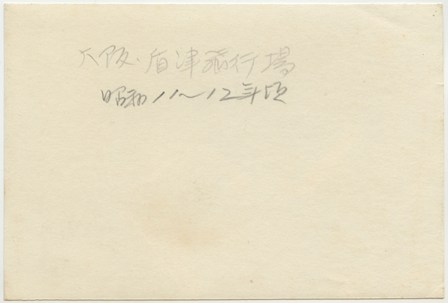 大阪・盾津飛行場
昭和11〜12年頃